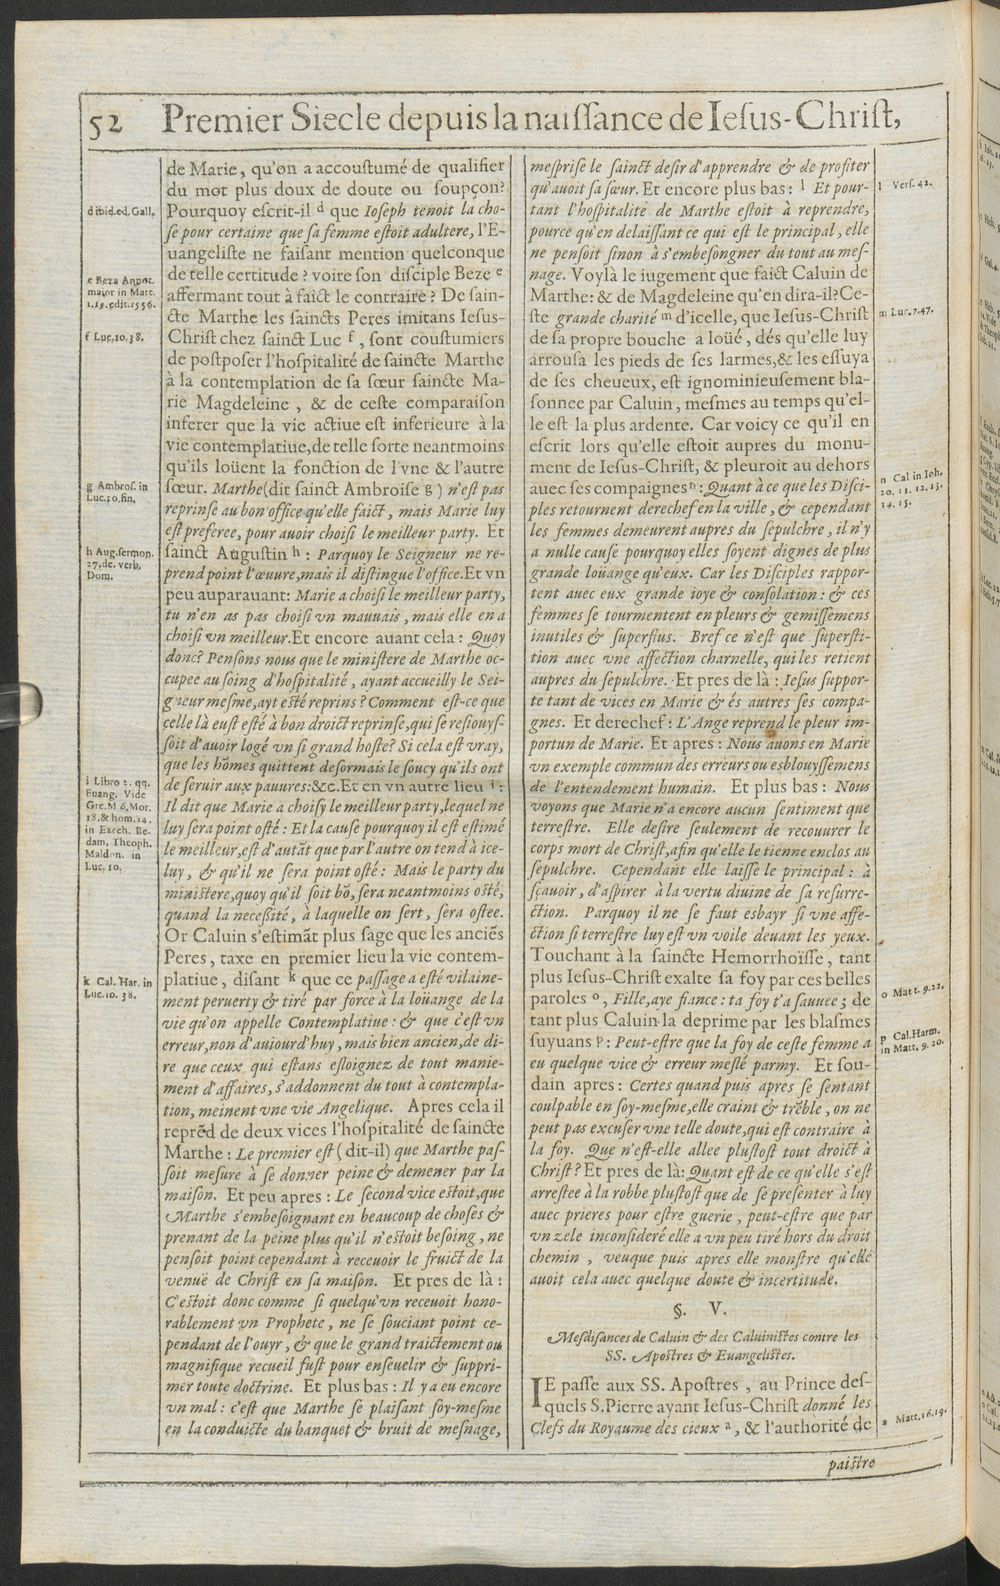 52 Premier Siecle depuis la naissance de Iesus-Christ,
de Marie, qu'on a accoustumé de qualifier
du mot plus doux de doute ou soupçon?
Pourquoy escrit-il d que Ioseph tenoit la cho-
se pour certaine que sa femme estoit adultere, l'E-
uangeliste ne faisant mention quelconque
de telle certitude? voire son disciple Beze e
affermant tout à faict le contraire? De sain-
cte Marthe les saincts Peres imitans Iesus-
Christ chez sainct Luc f, sont coustumiers
de postposer l'hospitalité de saincte Marthe
à la contemplation de sa sœur saincte Ma-
rie Magdeleine, & de ceste comparaison
inferer que la vie actiue est inferieure à la
vie contemplatiue, de telle sorte neantmoins
qu'ils loüent la fonction de l'vne & l'autre
sœur. Marthe (dit sainct Ambroise g) n'est pas
reprinse au bon office qu'elle faict, mais Marie luy
est preferee, pour auoir choisi le meilleur party. Et
sainct Augustin h: Parquoy le Seigneur ne re-
prend point l'œuure, mais il distingue l'office. Et vn
peu auparauant: Marie a choisi le meilleur party,
tu n'en as pas choisi vn mauuais, mais elle en a
choisi vn meilleur. Et encore auant cela: Quoy
donc? Pensons nous que le ministere de Marthe oc-
cupee au soing d'hospitalité, ayant accueilly le Sei-
gneur mesme, ayt esté reprins? Comment est-ce que
celle là eust esté à bon droict reprinse, qui se resiouys-
soit d'auoir logé vn si grand hoste? Si cela est vray,
que les hõmes quittent desormais le soucy qu'ils ont
de seruir aux pauures: &c. Et en vn autre lieu i:
Il dit que Marie a choisy le meilleur party, lequel ne
luy sera point osté: Et la cause pourquoy il est estimé
le meilleur, est d'autãt que par l'autre on tend à ice-
luy, & qu'il ne sera point osté: Mais le party du
ministere, quoy qu'il soit bõ, sera neantmoins osté,
quand la necessité, à laquelle on sert, sera ostee.
Or Caluin s'estimãt plus sage que les anciẽs
Peres, taxe en premier lieu la vie contem-
platiue, disant k que ce passage a esté vilaine-
ment peruerty & tiré par force à la loüange de la
vie qu'on appelle Contemplatiue: & que c'est vn
erreur, non d'auiourd'huy, mais bien ancien, de di-
re que ceux qui estans esloignez de tout manie-
ment d'affaires, s'addonnent du tout à contempla-
tion, meinent vne vie Angelique. Apres cela il
reprẽd de deux vices l'hospitalité de saincte
Marthe: Le premier est (dit-il) que Marthe pas-
soit mesure à se donner peine & demener par la
maison. Et peu apres: Le second vice estoit, que
Marthe s'embesoignant en beaucoup de choses &
prenant de la peine plus qu'il n'estoit besoing, ne
pensoit point cependant à receuoir le fruict de la
venuë de Christ en sa maison. Et pres de là:
C'estoit donc comme si quelqu'vn receuoit hono-
rablement vn Prophete, ne se souciant point ce-
pendant de l'ouyr, & que le grand traictement ou
magnifique recueil fust pour enseuelir & suppri-
mer toute doctrine. Et plus bas: Il y a eu encore
vn mal: c'est que Marthe se plaisant soy-mesme
en la conduicte du banquet & bruit de mesnage,
d ibid. ed. Gall.
e Beza Annot.
maior in Matt.
1.19. edit. 1556.
f Luc. 10. 38.
g Ambros. in
Luc. 10. fin.
h Aug. sermon.
27. de. verb.
Dom.
i Libro 2. qq.
Euang. Vide
Gre. M 6. Mor.
18. & hom. 14.
in Ezech. Be-
dam, Theoph.
Maldon. in
Luc. 10.
k Cal. Har. in
Luc. 10. 38.
mesprise le sainct desir d'apprendre & de profiter
qu'auoit sa sœur. Et encore plus bas: l Et pour-
tant l'hospitalité de Marthe estoit à reprendre,
pource qu'en delaissant ce qui est le principal, elle
ne pensoit sinon à s'embesongner du tout au mes-
nage. Voylà le iugement que faict Caluin de
Marthe: & de Magdeleine qu'en dira-il? Ce-
ste grande charité m d'icelle, que Iesus-Christ
de sa propre bouche a loüé, dés qu'elle luy
arrousa les pieds de ses larmes, & les essuya
de ses cheueux, est ignominieusement bla-
sonnee par Caluin, mesmes au temps qu'el-
le est la plus ardente. Car voicy ce qu'il en
escrit lors qu'elle estoit aupres du monu-
ment de Iesus-Christ, & pleuroit au dehors
auec ses compaignes n: Quant à ce que les Disci-
ples retournent derechef en la ville, & cependant
les femmes demeurent aupres du sepulchre, il n'y
a nulle cause pourquoy elles soyent dignes de plus
grande loüange qu'eux. Car les Disciples rappor-
tent auec eux grande ioye & consolation: & ces
femmes se tourmentent en pleurs & gemissemens
inutiles & superflus. Bref ce n'est que supersti-
tion auec vne affection charnelle, qui les retient
aupres du sepulchre. Et pres de là: Iesus suppor-
te tant de vices en Marie & és autres ses compa-
gnes. Et derechef: L'Ange reprend le pleur im-
portun de Marie. Et apres: Nous auons en Marie
vn exemple commun des erreurs ou esblouyssemens
de l'entendement humain. Et plus bas: Nous
voyons que Marie n'a encore aucun sentiment que
terrestre. Elle desire seulement de recouurer le
corps mort de Christ, afin qu'elle le tienne enclos au
sepulchre. Cependant elle laisse le principal: à
sçauoir, d'aspirer à la vertu diuine de sa resurre-
ction. Parquoy il ne se faut esbayr si vne affe-
ction si terrestre luy est vn voile deuant les yeux.
Touchant à la saincte Hemorrhoïsse, tant
plus Iesus-Christ exalte sa foy par ces belles
paroles o, Fille, aye fiance: ta foy t'a sauuee; de
tant plus Caluin la deprime par les blasmes
suyuans p: Peut-estre que la foy de ceste femme a
eu quelque vice & erreur meslé parmy. Et sou-
dain apres: Certes quand puis apres se sentant
coulpable en soy-mesme, elle craint & trẽble, on ne
peut pas excuser vne telle doute, qui est contraire à
la foy. Que n'est-elle allee plustost tout droict à
Christ? Et pres de là: Quant est de ce qu'elle s'est
arrestee à la robbe plustost que de se presenter à luy
auec prieres pour estre guerie, peut-estre que par
vn zele inconsideré elle a vn peu tiré hors du droit
chemin, veuque puis apres elle monstre qu'elle
auoit cela auec quelque doute & incertitude.
§. V.
Mesdisances de Caluin & des Caluinistes contre les
SS. Apostres & Euangelistes.
IE passe aux SS. Apostres, au Prince des-
quels S. Pierre ayant Iesus-Christ donné les
Clefs du Royaume des cieux a, & l'authorité de
paistre
l Vers. 42.
m Luc. 7. 47.
n Cal in Ioh.
20. 11. 12. 13.
14. 15.
o Matt. 9. 22.
p Cal. Harm.
in Matt. 9. 20.
a Matt. 16. 19.